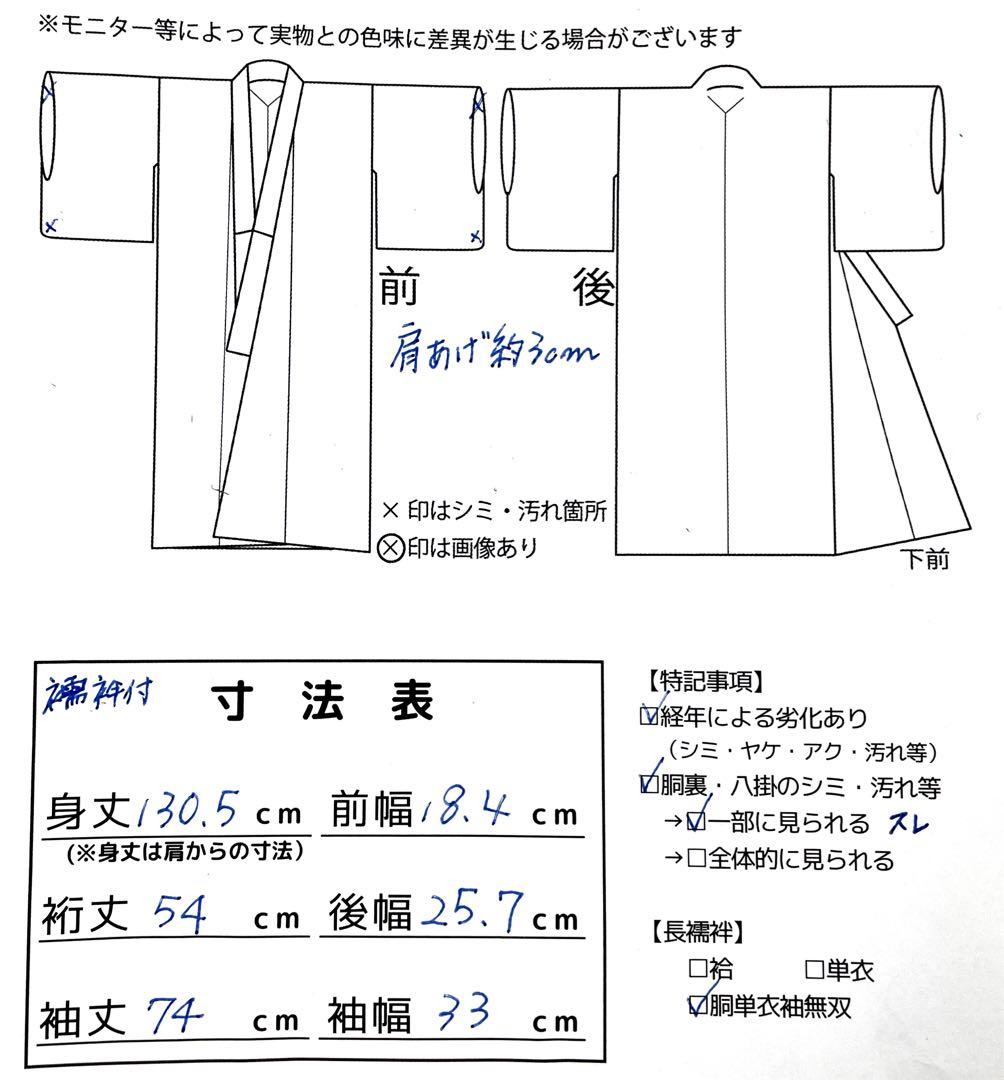 ※モニター等によって実物との色味に差異が生じる場合がございます
前
後
肩あげ約3cm
× 印はシミ・汚れ箇所
Ⓧ印は画像あり
下前
襦袢付 寸法表
身丈130.5 cm 前幅18.4 cm
(※身丈は肩からの寸法)
裄丈 54 cm 後幅25.7cm
袖丈 74 cm 袖幅 33 cm
【特記事項】
☑経年による劣化あり
(シミ・ヤケ・アク・汚れ等)
☑胴裏・八掛のシミ・汚れ等
→☑一部に見られる スレ
→□全体的に見られる
【長襦袢】
□袷 □単衣
☑胴単衣袖無双